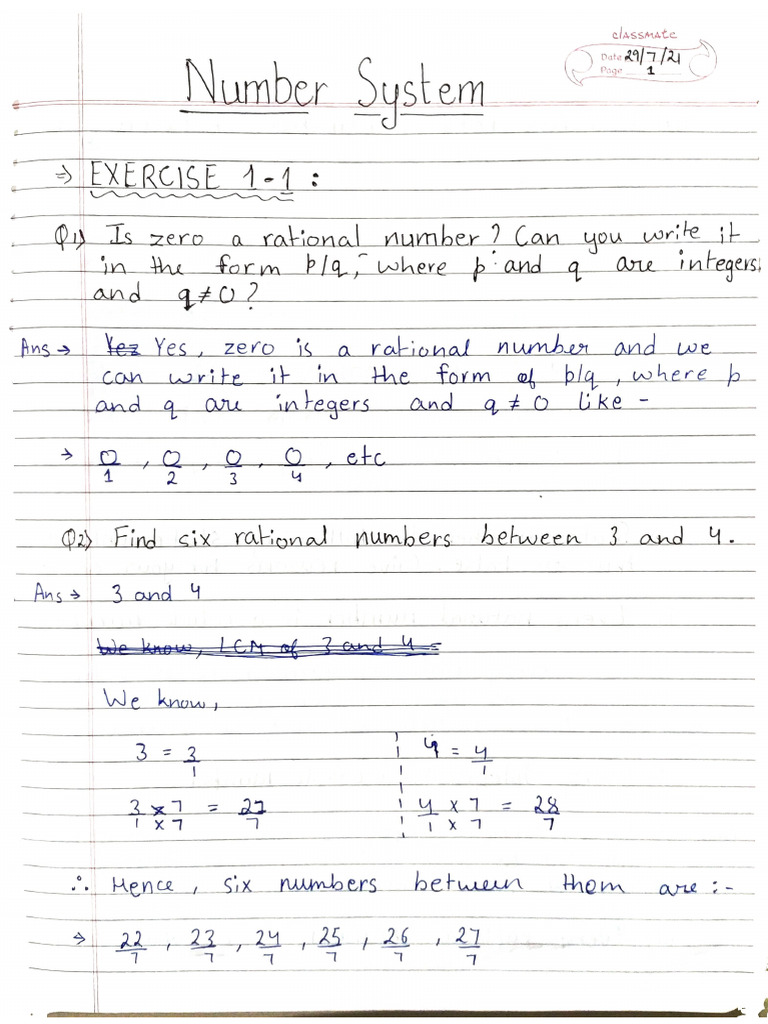 classmate
Date 29/7/21
Page 1
Number System
⇒ EXERCISE 1-1 :
Q1) Is zero a rational number? Can you write it
in the form p/q, where p and q are integers
and q ≠ 0?
Ans → Yez Yes, zero is a rational number and we
can write it in the form of p/q, where p
and q are integers and q ≠ 0 like -
→ 0/1, 0/2, 0/3, 0/4, etc
Q2) Find six rational numbers between 3 and 4.
Ans → 3 and 4
We know, LCM of 3 and 4 =
We know,
3 = 3/1 4 = 4/1
3/1 × 7/7 = 21/7 4/1 × 7/7 = 28/7
∴ Hence, six numbers between them are :-
⇒ 22/7, 23/7, 24/7, 25/7, 26/7, 27/7